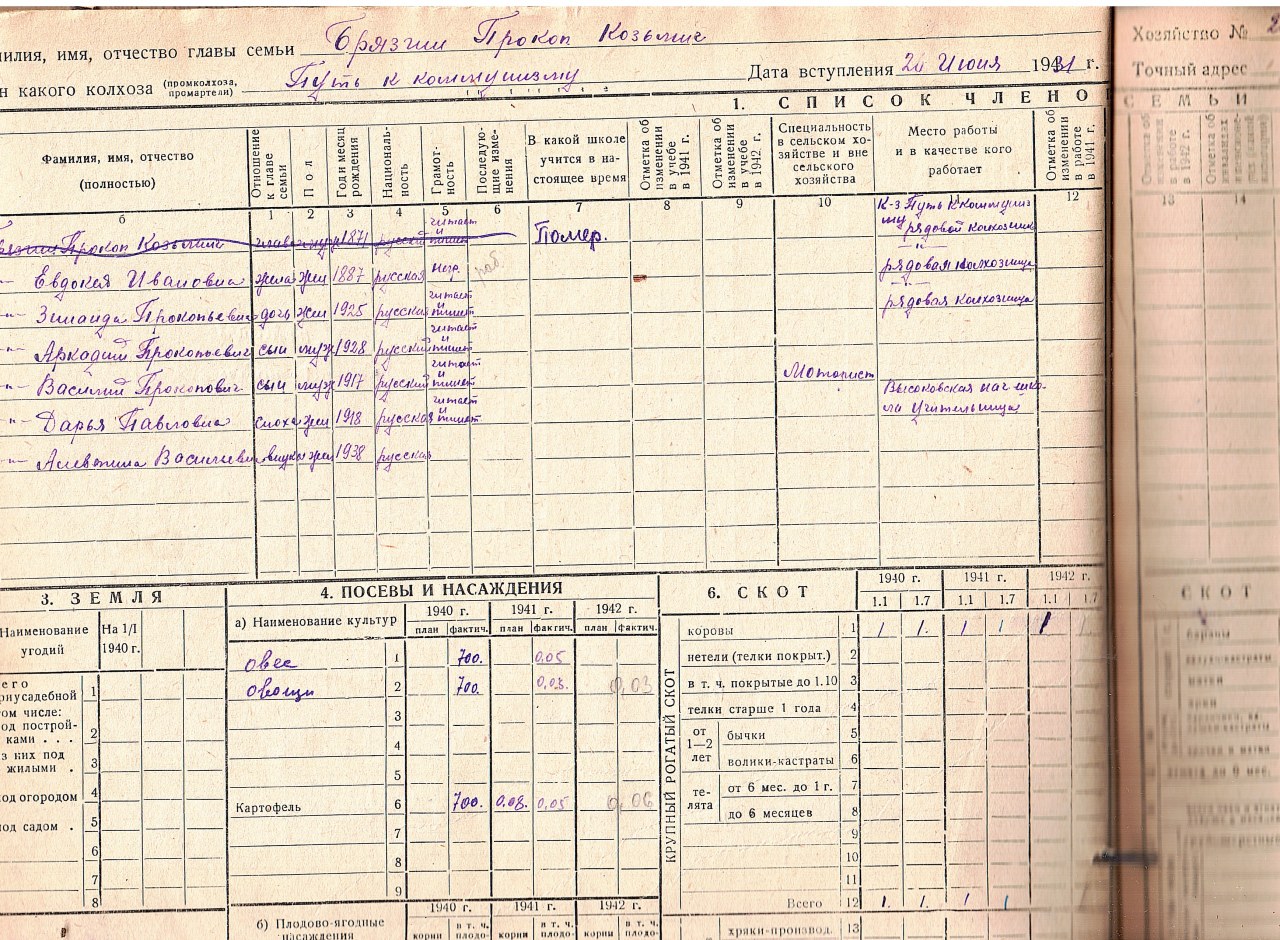 милия, имя, отчество главы семьи Брязгин Прокоп Козьмич
н какого колхоза (промколхоза, промартели) Путь к коммунизму Дата вступления 20 Июня 1931 г.
1. СПИСОК ЧЛЕНО
Фамилия, имя, отчество (полностью) Отношение к главе семьи Пол Год и месяц рождения Националь-ность Грамот-ность Последую-щие изме-нения В какой школе учится в на-стоящее время Отметка об изменении в учебе в 1941 г. Отметка об изменении в учебе в 1942 г. Специальность в сельском хо-зяйстве и вне сельского хозяйства Место работы и в качестве кого работает Отметка об изменении в работе в 1941 г.
б 1 2 3 4 5 6 7 8 9 10 11 12
Прокоп Козьмич глава муж 1871 русский читает и пишет Помер. К-з Путь к коммунизму рядовой колхозник
-"- Евдокея Ивановна жена жен 1887 русская негр. раб. -"- рядовая колхозница
-"- Зинаида Прокопьевна дочь жен 1925 русская читает и пишет -"- рядовая колхозница
-"- Аркадий Прокопьевич сын муж 1928 русский читает и пишет
-"- Василий Прокопович сын муж 1917 русский читает и пишет Моторист
-"- Дарья Павловна сноха жен 1918 русская читает и пишет Высоковская нач школа Учительница
-"- Алевтина Васильевн внучка жен 1938 русская
3. ЗЕМЛЯ
Наименование угодий На 1/I 1940 г.
его приусадебной 1
том числе:
од построй-ками . . . 2
з них под жилыми . 3
под огородом 4
под садом . 5
6
7
8
4. ПОСЕВЫ И НАСАЖДЕНИЯ
а) Наименование культур 1940 г. 1941 г. 1942 г.
план фактич. план фактич. план фактич.
овес 1 700. 0,05
овощи 2 700. 0,03. 0,03
3
4
5
Картофель 6 700. 0,08. 0,05 0,06
7
8
9
1940 г. 1941 г. 1942 г.
б) Плодово-ягодные насаждения корни в т. ч. плодо- корни в т. ч. плодо- корни в т. ч. плодо-
6. СКОТ
1940 г. 1941 г. 1942 г.
1.1 1.7 1.1 1.7 1.1 1.7
КРУПНЫЙ РОГАТЫЙ СКОТ
коровы 1 1 1. 1 1 1
нетели (телки покрыт.) 2
в т. ч. покрытые до 1.10 3
телки старше 1 года 4
от 1—2 лет бычки 5
волики-кастраты 6
те-лята от 6 мес. до 1 г. 7
до 6 месяцев 8
9
10
11
Всего 12 1. 1. 1 1
хряки-производ. 13
Хозяйство №
Точный адрес
СЕМЬИ
13 14
СКОТ
бараны
матки